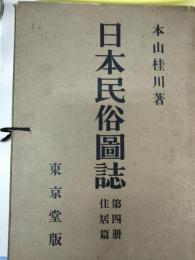 本山桂川著
日本民俗圖誌
第四册
住居篇
東京堂版